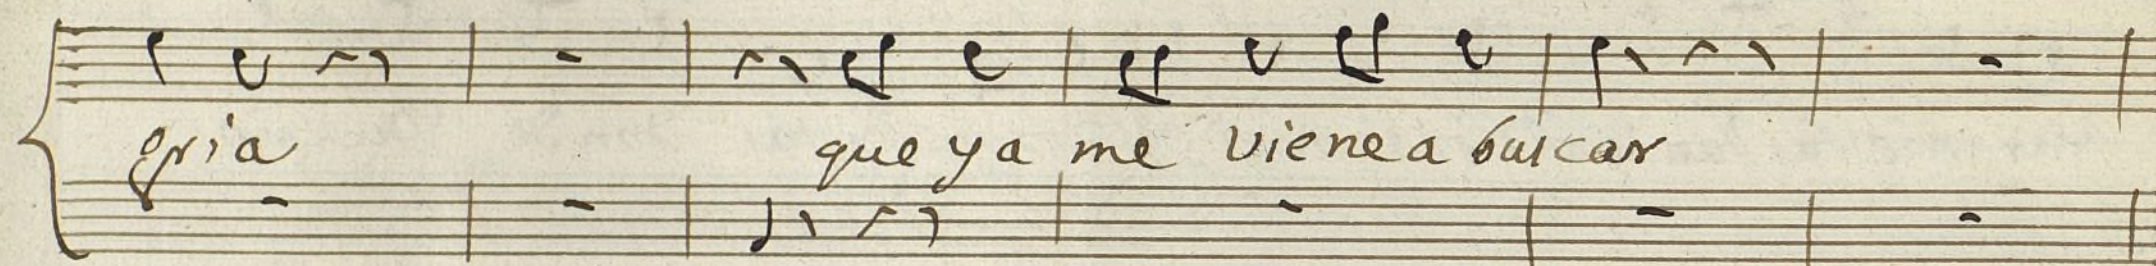 gria que ya me viene a buscar